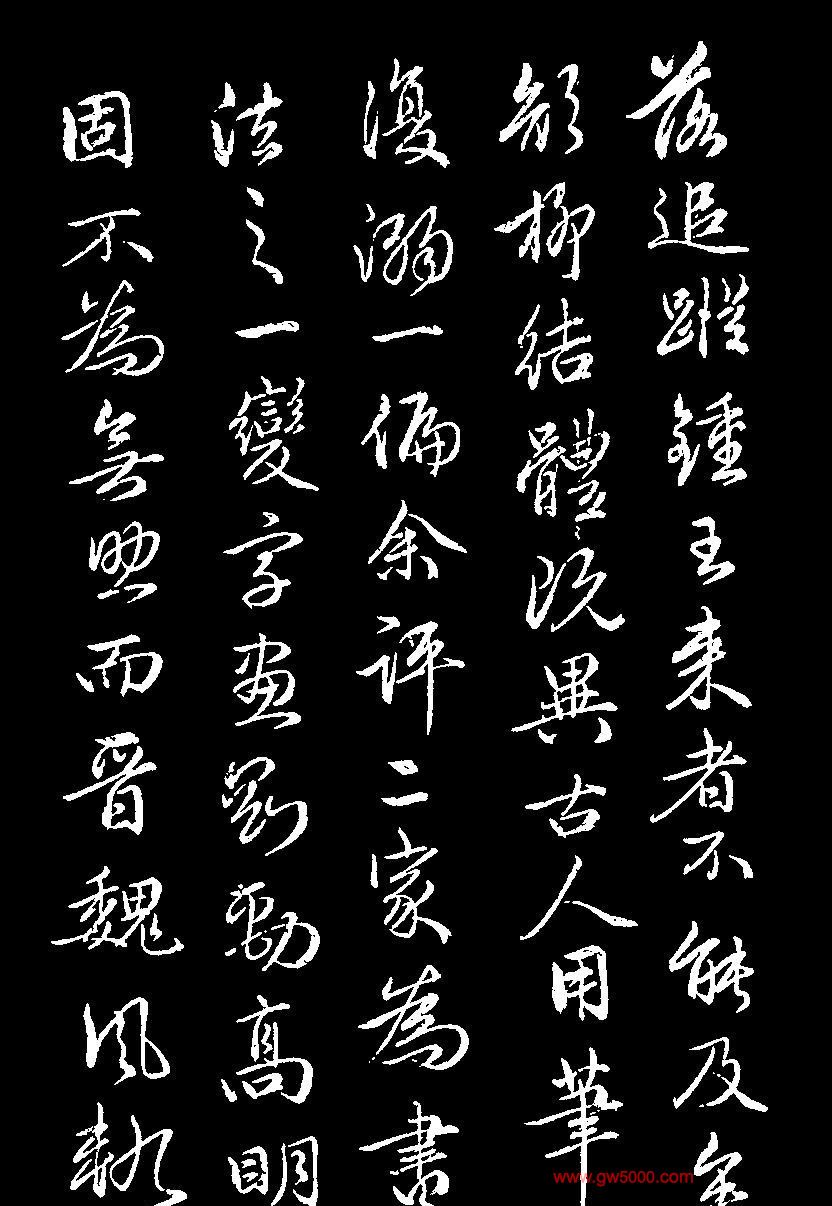 落追蹤鍾王来者不能及
顏柳結體既異古人用筆
復溺一偏余評二家為書
法之一變字畫剛勁高明
固不為無而晋魏風軌
www.gw5000.com